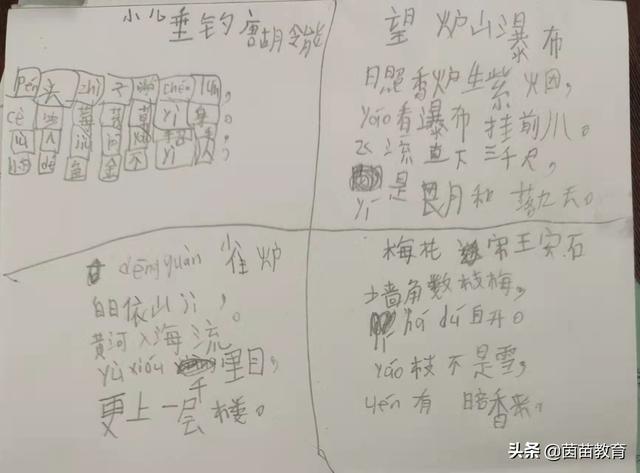 小儿垂钓唐胡令能
péng 头 zhì 子 学 chuí lún,
cè 坐 莓 苔 草 yì 身。
lù 人 jiè 问 yáo 招 手,
pà dé 鱼 不 yì 人,
望炉山瀑布
日照香炉生紫烟,
yáo看瀑布挂前川。
飞流直下三千尺,
yí是畏月和落九天。
dēng quàn 隹炉
白日依山jì,
黄河入海流。
yù xióu 千里目,
更上一层楼。
梅花 宋王安石
墙角数枝梅,
há dú 自开。
yáo枝不是雪,
uén有暗香来。
头条 @茵苗教育